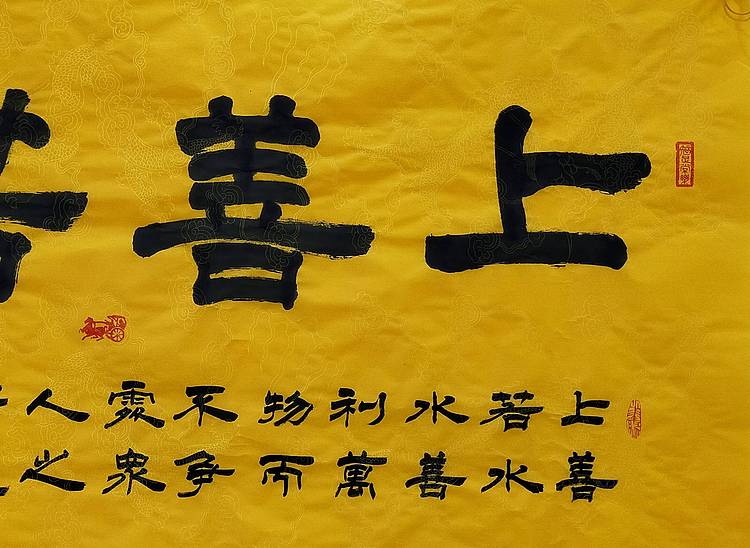 上善
上善
若水
水善
利萬
物而
不爭
處衆
人之